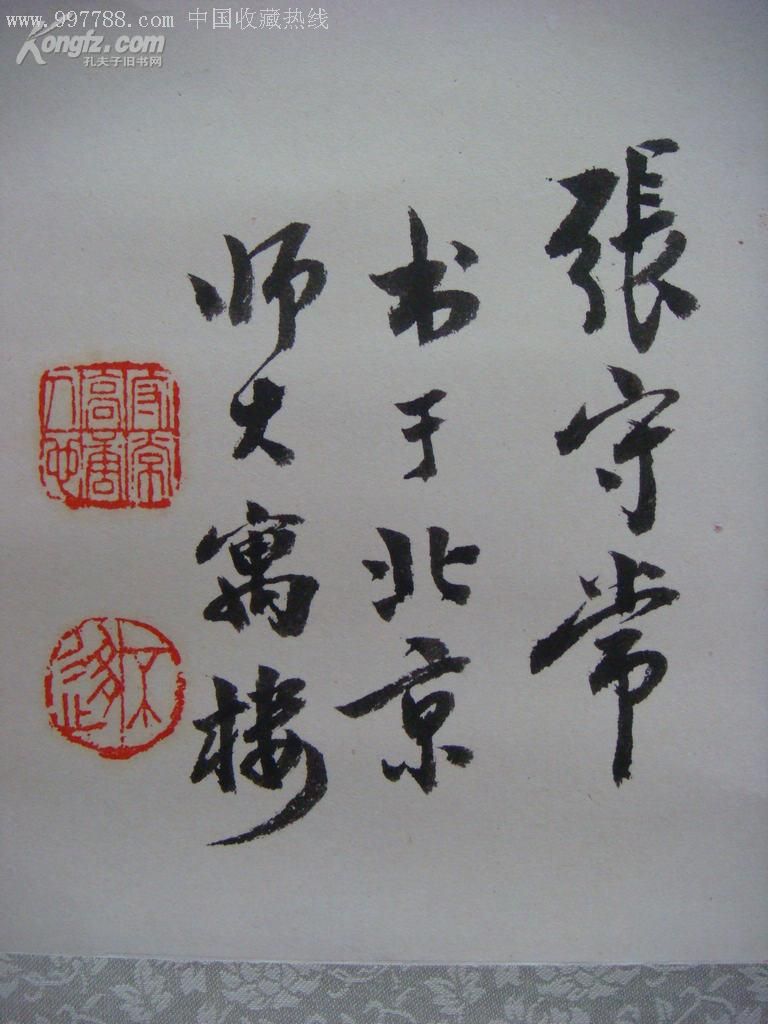 www.997788.com 中国收藏热线
Kongfz.com
孔夫子旧书网
張守常
书于北京
师大寓楼
守常
高唐
人也